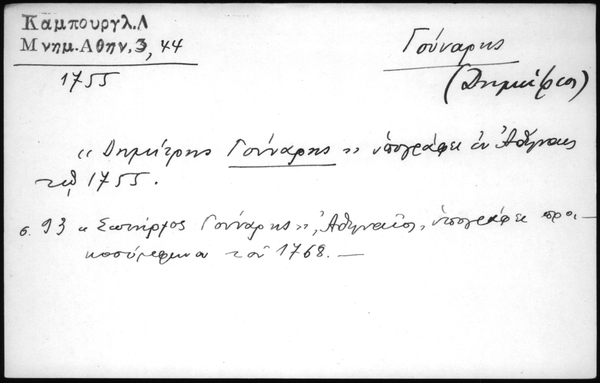 Καμπουργλ.Λ
Μνημ.Αθην.3, 44
1755
Γούναρης
(Δημήτριος)
« Δημήτρης Γούναρης » ὑπογράφει ἐν Ἀθήναις
τῷ 1755.
σ. 93 « Σωτήρχος Γούναρης », Ἀθηναῖος, ὑπογράφει προι-
κοσύμφωνα τοῦ 1768. —